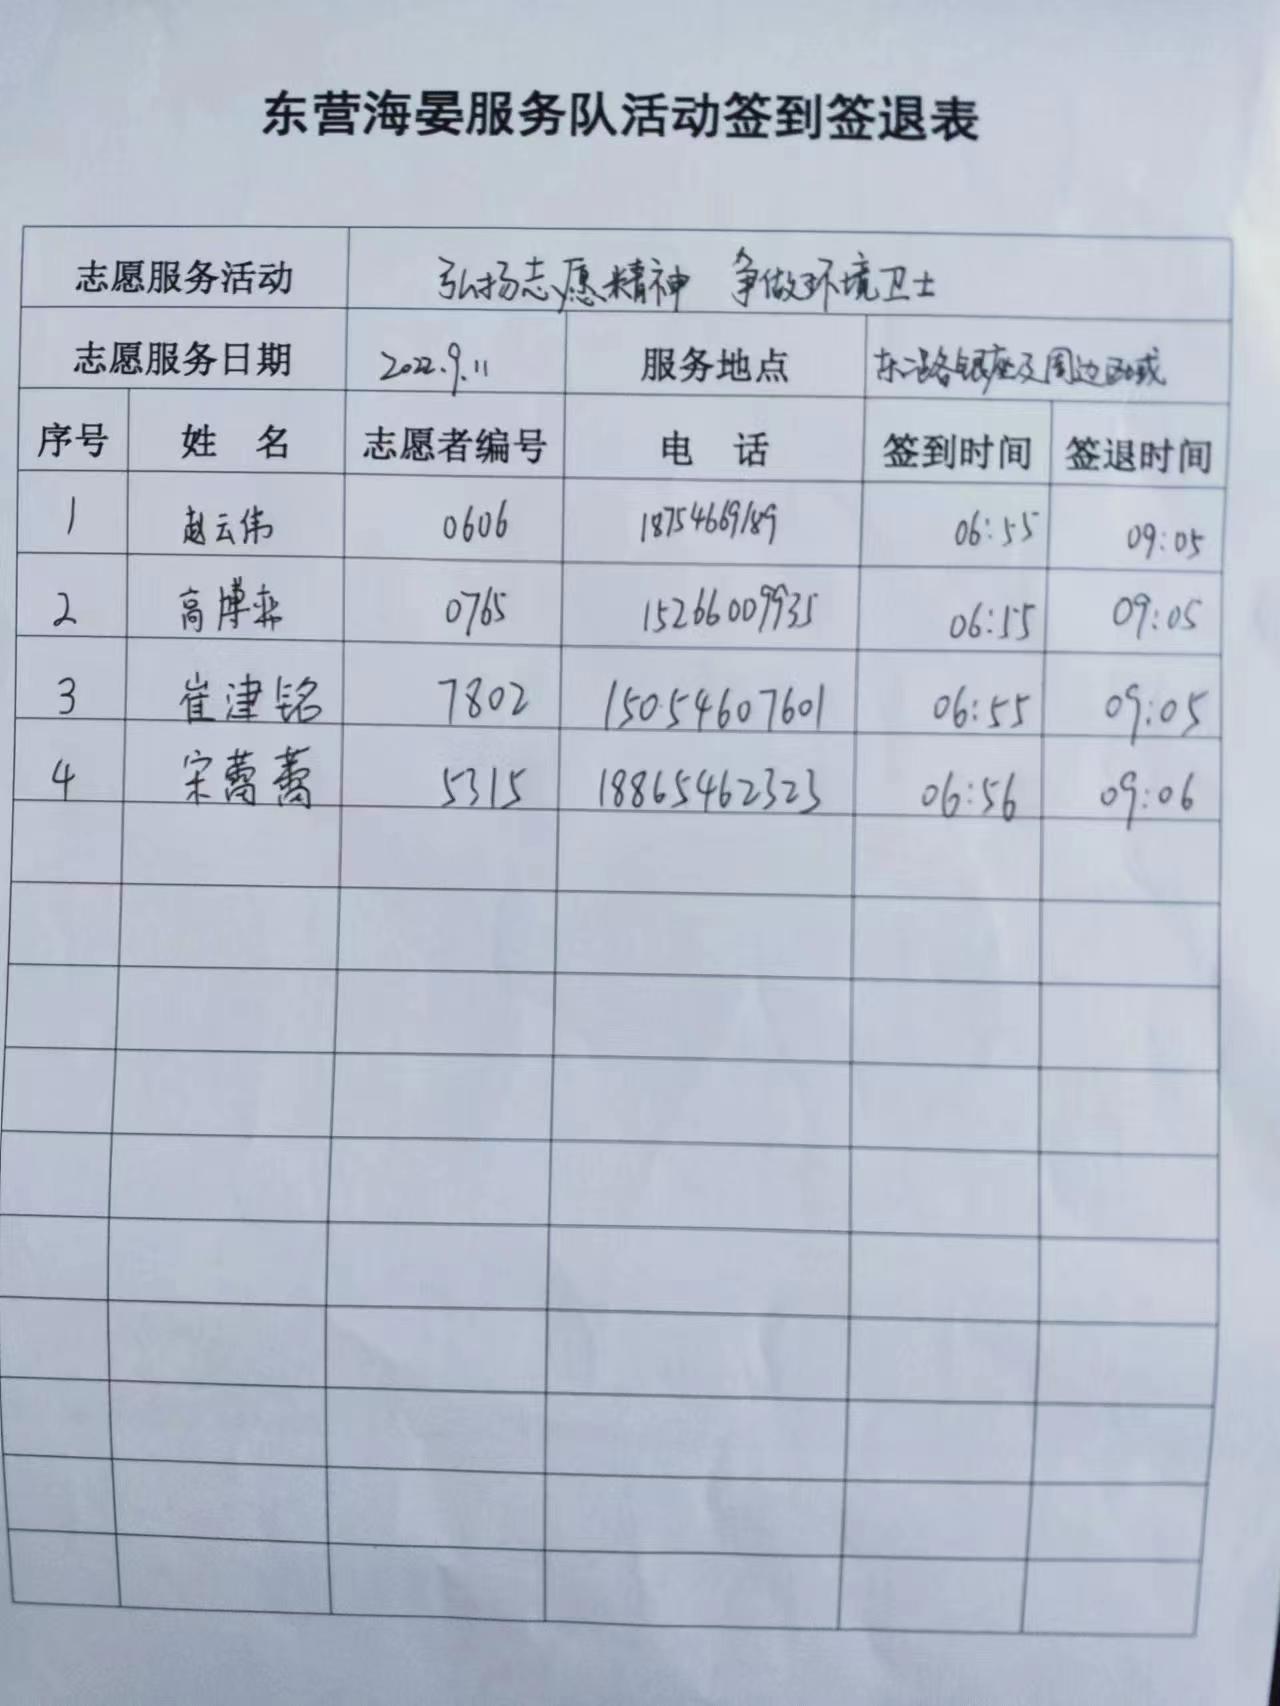 东营海晏服务队活动签到签退表
志愿服务活动 弘扬志愿精神 争做环境卫士
志愿服务日期 2022.9.11 服务地点 东二路银座及周边区域
序号 姓 名 志愿者编号 电 话 签到时间 签退时间
1 赵云伟 0606 18754669189 06:55 09:05
2 高博弈 0765 15266009935 06:55 09:05
3 崔津铭 7802 15054607601 06:55 09:05
4 宋蕾蕾 5315 18865462323 06:56 09:06